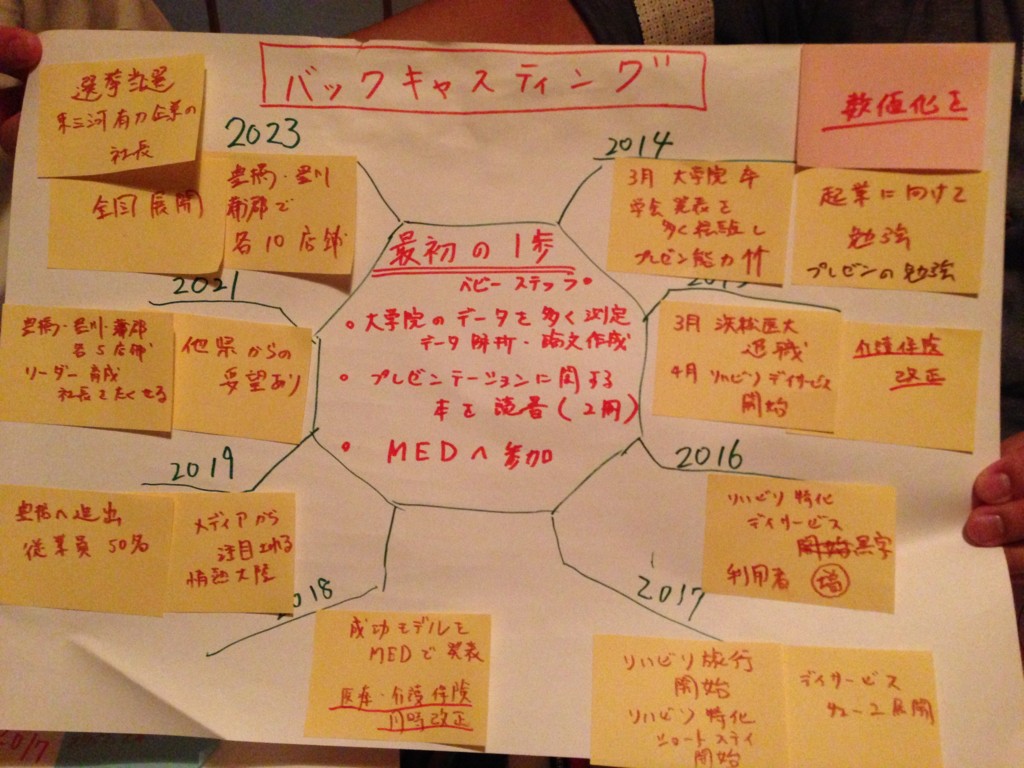 バックキャスティング
数値化を
最初の1歩
ベビーステップ
・大学院のデータを多く測定
データ解析・論文作成
・プレゼンテーションに関する
本を読書(2冊)
・MEDへ参加
2014
3月 大学院 卒
学会発表を
多く経験し
プレゼン能力↑↑
起業に向けて
勉強
プレゼンの勉強
3月 浜松医大
退職
4月 リハビリデイサービス
開始
介護保険
改正
2016
リハビリ特化
デイサービス
黒字
利用者 増
2017
リハビリ旅行
開始
リハビリ特化
ショートステイ
開始
デイサービス
チェーン展開
18
成功モデルを
MEDで発表
医療・介護保険
同時改正
2019
豊橋へ進出
従業員 50名
メディアから
注目される
情熱大陸
2021
豊橋・豊川・蒲郡
各5店舗
リーダー育成
社長をたくせる
他県からの
要望あり
2023
選挙当選
東三河有力企業の
社長
全国展開
豊橋・豊川
蒲郡で
各10店舗